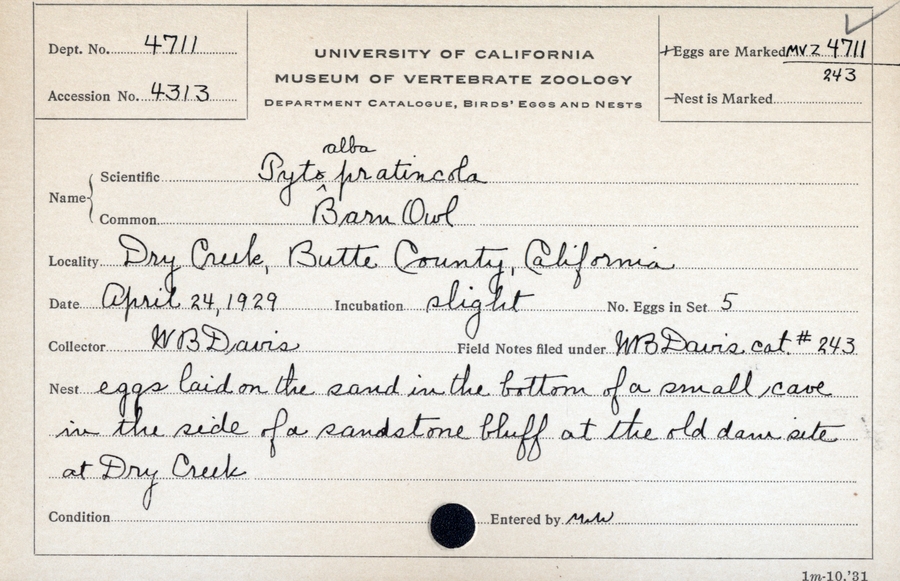 Dept. No. 4711
Accession No. 4313
UNIVERSITY OF CALIFORNIA
MUSEUM OF VERTEBRATE ZOOLOGY
DEPARTMENT CATALOGUE, BIRDS' EGGS AND NESTS
Eggs are Marked MVZ 4711
243
Nest is Marked
alba
Name Scientific Tyto ^ pratincola
Common Barn Owl
Locality Dry Creek, Butte County, California
Date April 24, 1929 Incubation slight No. Eggs in Set 5
Collector WB Davis Field Notes filed under WB Davis cat. # 243
Nest eggs laid on the sand in the bottom of a small cave
in the side of a sandstone bluff at the old dam site
at Dry Creek
Condition Entered by
1m-10.'31